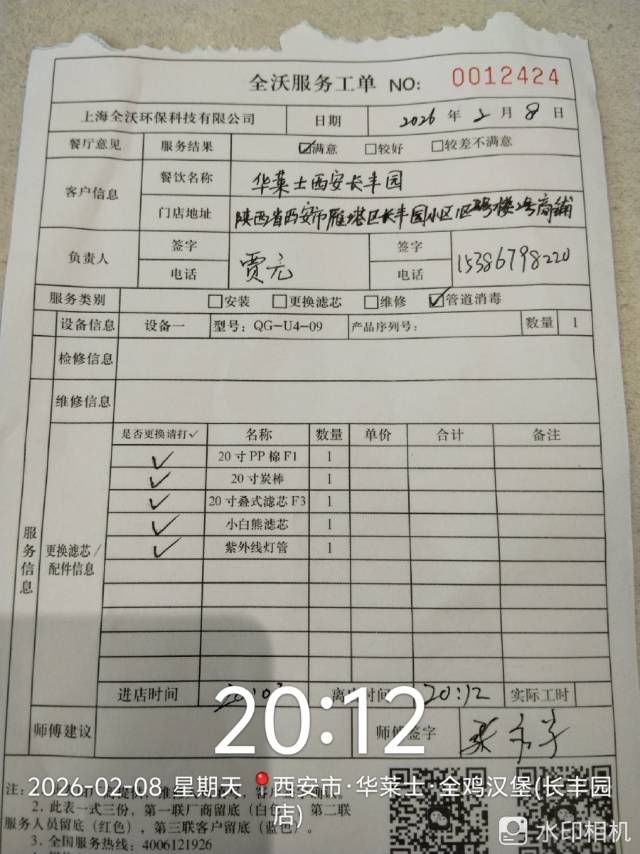 全沃服务工单 NO: 0012424
上海全沃环保科技有限公司 日期 2026 年 2 月 8 日
餐厅意见 服务结果 ☑满意 □较好 □较差不满意
客户信息 餐饮名称 华莱士西安长丰园
门店地址 陕西省西安市雁塔区长丰园小区1区 号楼2号商铺
负责人 签字 贾元 签字 15386798220
电话 电话
服务类别 □安装 □更换滤芯 □维修 ☑管道消毒
设备信息 设备一 型号: QG-U4-09 产品序列号: 数量 1
检修信息
维修信息
服务信息
更换滤芯/配件信息
是否更换请打✓ 名称 数量 单价 合计 备注
✓ 20寸PP棉F1 1
✓ 20寸炭棒 1
✓ 20寸叠式滤芯F3 1
✓ 小白熊滤芯 1
✓ 紫外线灯管 1
进店时间 离 时间 20:12 实际工时
20:12
师傅建议 师傅签字
2026-02-08 星期天 西安市·华莱士·全鸡汉堡(长丰园店)
注:
2. 此表一式三份,第一联厂商留底(白色) 第二联
服务人员留底(红色),第三联客户留底(蓝色)。
3. 全国服务热线: 4006121926
水印相机